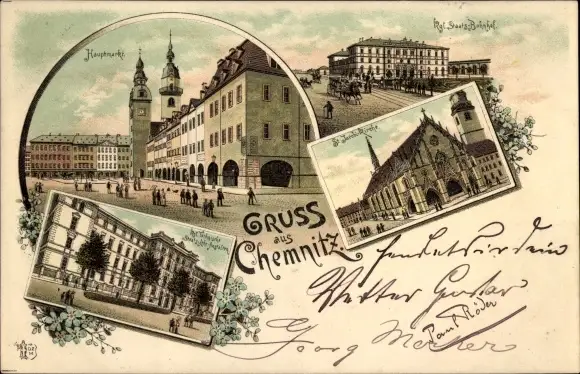 Hauptmarkt.
Kgl. Staats-Bahnhof.
St. Jacobi-Kirche
Kgl. Technische
Staats-Lehr-Anstalten
GRUSS
aus
Chemnitz
sendet Dir dein
Vetter Gustav
Paul Röder
Georg